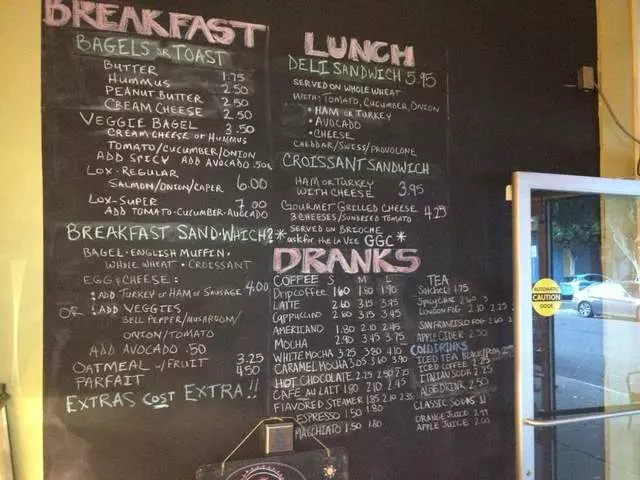 BREAKFAST
BAGELS OR TOAST
BUTTER 1.75
HUMMUS 2.50
PEANUT BUTTER 2.50
CREAM CHEESE 2.50
VEGGIE BAGEL 3.50
CREAM CHEESE OR HUMMUS
TOMATO/CUCUMBER/ONION
ADD SPICY ADD AVOCADO .50¢
LOX-REGULAR 6.00
SALMON/ONION/CAPER
LOX-SUPER 7.00
ADD TOMATO·CUCUMBER·AVOCADO
BREAKFAST SAND·WHICH?*
BAGEL·ENGLISH MUFFIN·
WHOLE WHEAT·CROISSANT
EGG & CHEESE: 4.00
: ADD TURKEY OR HAM OR SAUSAGE
OR : ADD VEGGIES
BELL PEPPER/MUSHROOM/
ONION/TOMATO
ADD AVOCADO .50
OATMEAL -/FRUIT 3.25
PARFAIT 4.50
EXTRAS COST EXTRA!!
LUNCH
DELI SANDWICH 5.95
SERVED ON WHOLE WHEAT
WITH: TOMATO, CUCUMBER, ONION
• HAM OR TURKEY
• AVOCADO
• CHEESE
CHEDDAR/SWISS/PROVOLONE
CROISSANT SANDWICH
HAM OR TURKEY
WITH CHEESE 3.95
GOURMET GRILLED CHEESE 4.25
3 CHEESES/SUNDRIED TOMATO
SERVED ON BRIOCHE
ask for the La Vie GGC*
DRANKS
COFFEE S M L
DRIP COFFEE 1.60 1.80 1.90
LATTE 2.60 3.15 3.75
CAPPUCCINO 2.60 3.15 3.45
AMERICANO 1.80 2.10 2.45
MOCHA 2.90 3.45 3.75
WHITE MOCHA 3.25 3.80 4.10
CARAMEL MOCHA 3.05 3.60 3.90
HOT CHOCOLATE 2.25 2.50 2.75
CAFE AU LAIT 1.80 2.10 2.45
FLAVORED STEAMER 1.85 2.10 2.35
ESPRESSO 1.50 1.80
MACCHIATO 1.50 1.80
TEA
SATCHEL 1.75
SPICY CHAI 2.60
LONDON FOG 2.10 2.25
SAN FRANCISCO FOG 2.60
APPLE CIDER 2.50
COLD DRINKS
ICED TEA BLACK
ICED COFFEE 2.25
ITALIAN SODA 2.25
ALOE DRINK 2.50
CLASSIC SODAS
ORANGE JUICE 2.97
APPLE JUICE 2.00
AUTOMATIC
CAUTION
DOOR